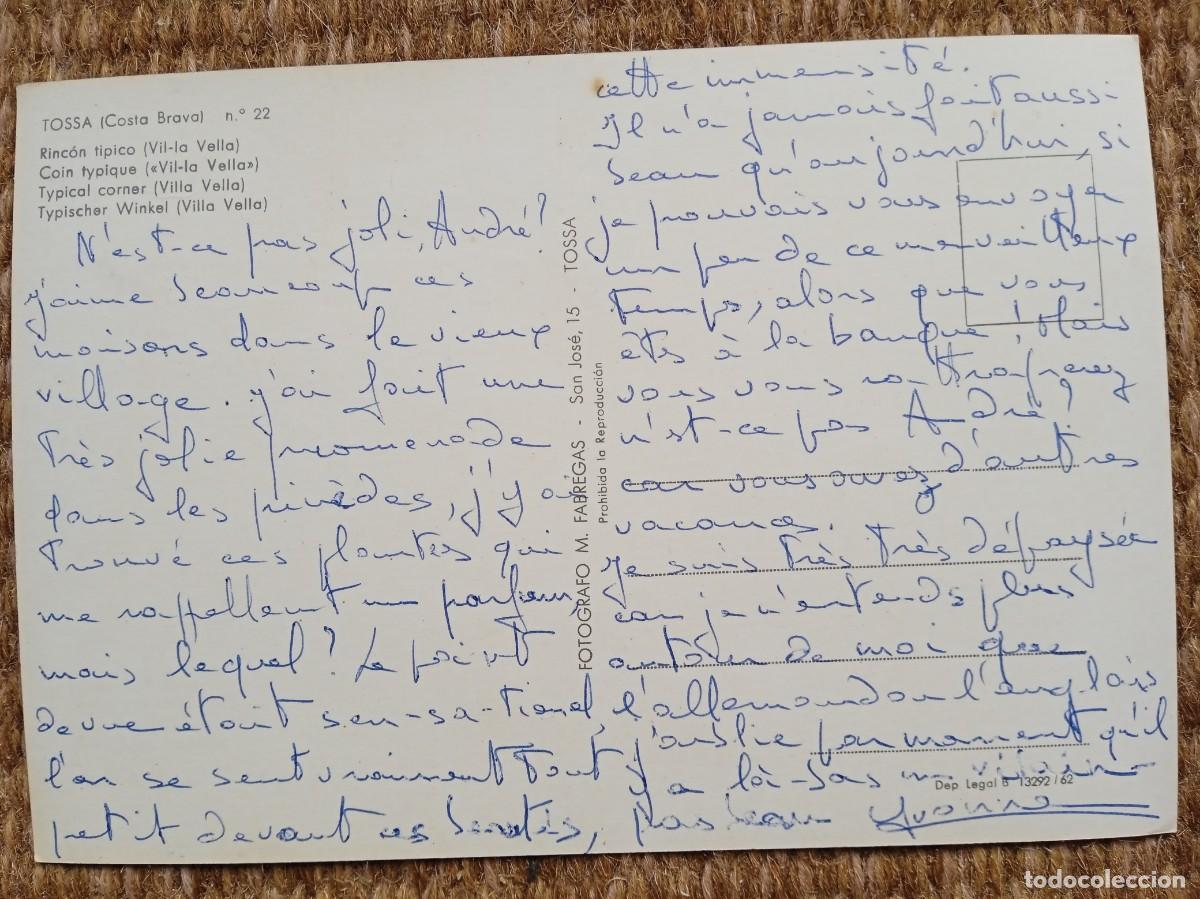 TOSSA (Costa Brava) n.º 22
Rincón tipico (Vil-la Vella)
Coin typique («Vil-la Vella»)
Typical corner (Villa Vella)
Typischer Winkel (Villa Vella)
N'est-ce pas joli, André?
J'aime beaucoup ces
maisons dans le vieux
village. J'ai fait une
très jolie promenade
dans les pinèdes, j'y ai
trouvé ces plantes qui
me rappellent un parfum,
mais lequel? Le point
de vue était sen-sa-tionel,
l'on se sent vraiment tout
petit devant ces beautés,
FOTOGRAFO M. FABREGAS - San José, 15 - TOSSA
Prohibida la Reproducción
cette immensité.
Il n'a jamais fait aussi
beau qu'aujourd'hui, si
je pouvais vous envoyer
un peu de ce merveilleux
temps, alors que vous
êtes à la banque! Mais
vous vous rattraperez
n'est-ce pas André?
car vous avez d'autres
vacances.
Je suis très très dépaysée
car je n'entends plus
autour de moi que
l'allemand ou l'anglais
j'oublie par moment qu'il
y a là-bas un vilain
pas beau Yvonne
Dep. Legal B 13292/62
todocoleccion